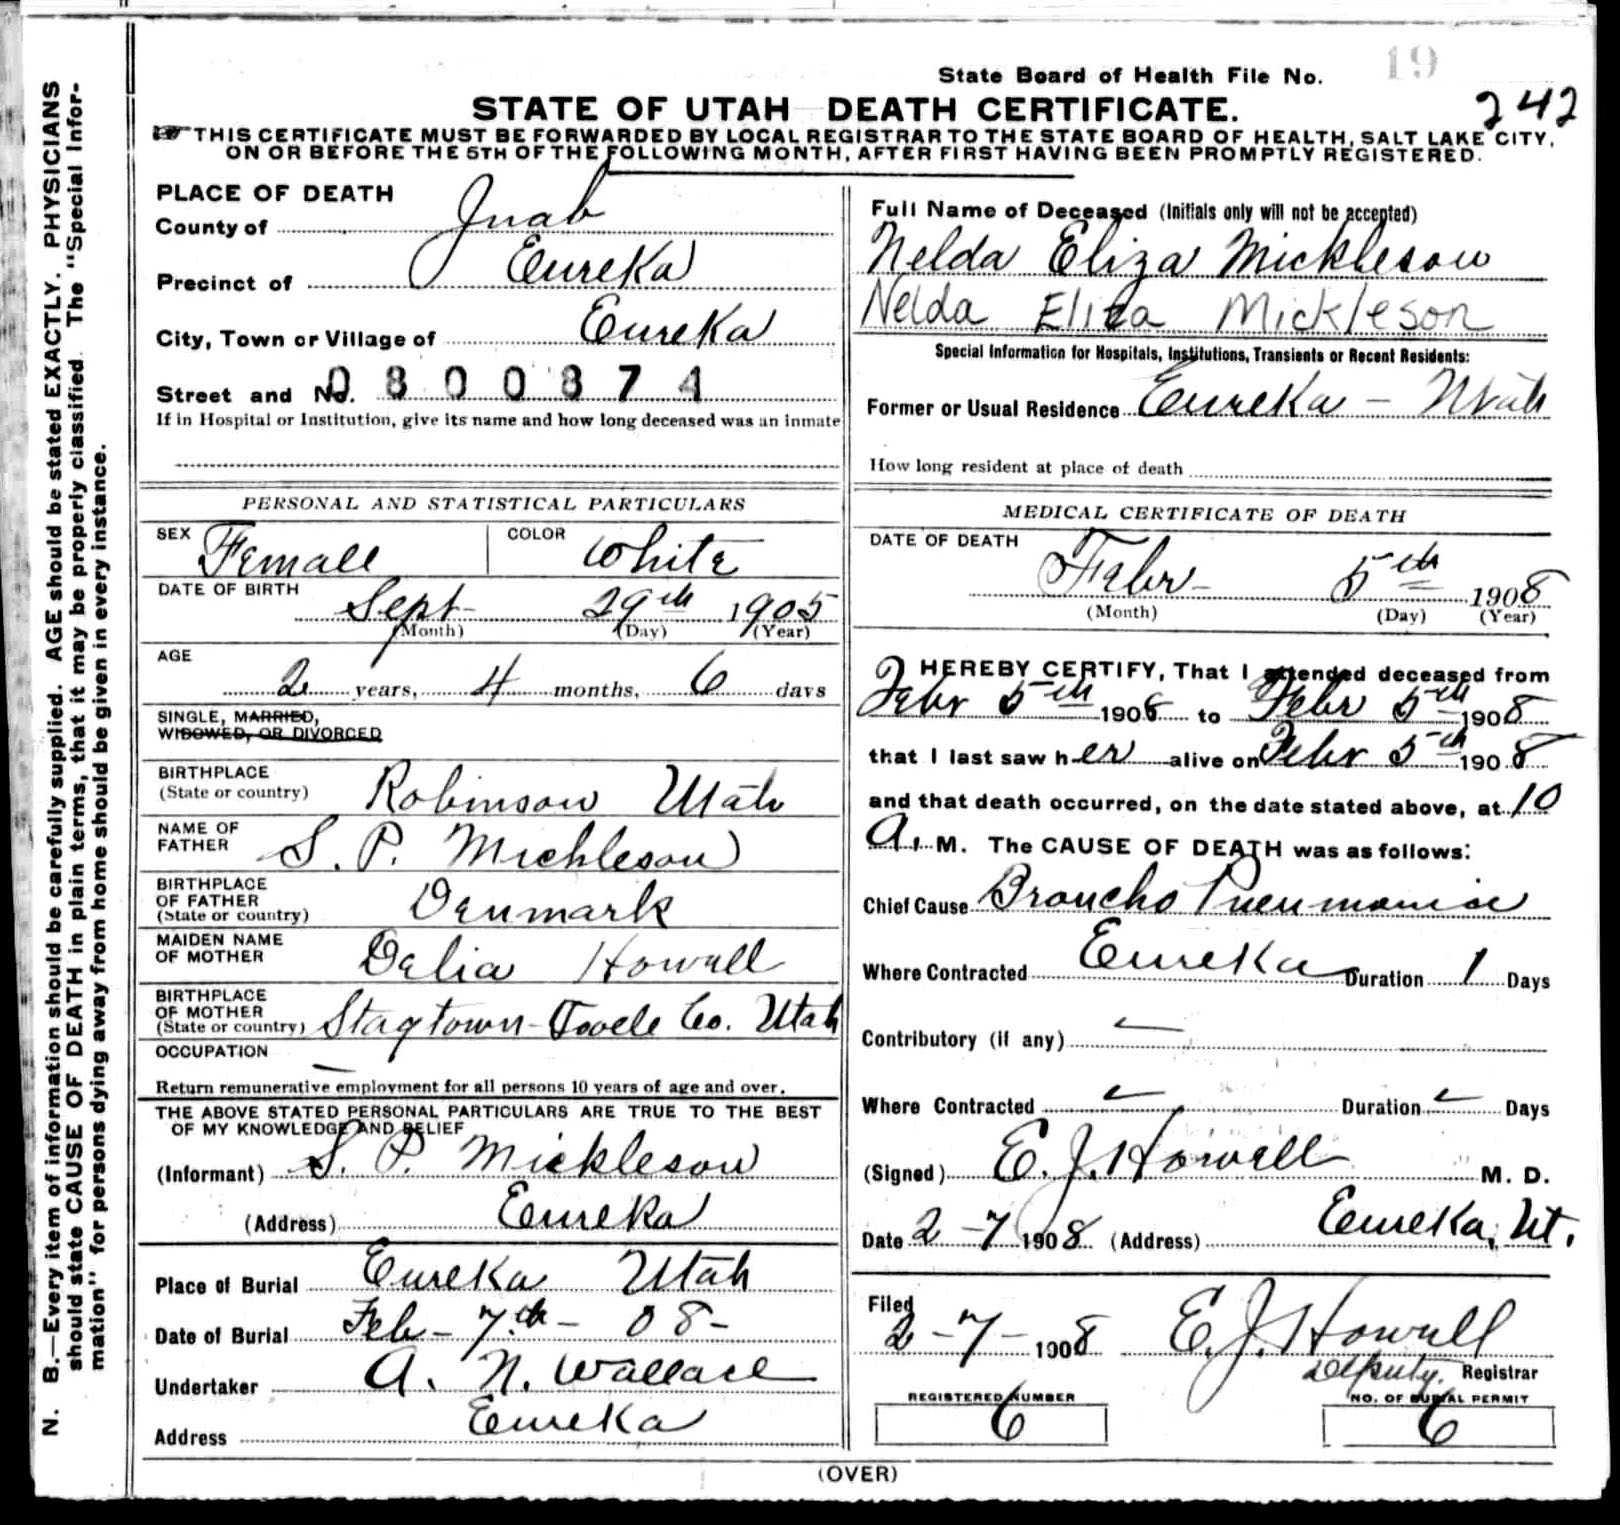 State Board of Health File No. 19
242
STATE OF UTAH DEATH CERTIFICATE.
THIS CERTIFICATE MUST BE FORWARDED BY LOCAL REGISTRAR TO THE STATE BOARD OF HEALTH, SALT LAKE CITY,
ON OR BEFORE THE 5TH OF THE FOLLOWING MONTH, AFTER FIRST HAVING BEEN PROMPTLY REGISTERED.
N. B.—Every item of information should be carefully supplied. AGE should be stated EXACTLY. PHYSICIANS
should state CAUSE OF DEATH in plain terms, that it may be properly classified. The "Special Infor-
mation" for persons dying away from home should be given in every instance.
PLACE OF DEATH
County of Juab
Precinct of Eureka
City, Town or Village of Eureka
Street and No. 0800874
If in Hospital or Institution, give its name and how long deceased was an inmate
PERSONAL AND STATISTICAL PARTICULARS
SEX Female COLOR White
DATE OF BIRTH
Sept 29th 1905
(Month) (Day) (Year)
AGE
2 years, 4 months, 6 days
SINGLE, MARRIED,
WIDOWED, OR DIVORCED
BIRTHPLACE
(State or country) Robinson Utah
NAME OF
FATHER S. P. Mickleson
BIRTHPLACE
OF FATHER
(State or country) Denmark
MAIDEN NAME
OF MOTHER Delia Howell
BIRTHPLACE
OF MOTHER
(State or country) Stagtown - Tooele Co. Utah
OCCUPATION —
Return remunerative employment for all persons 10 years of age and over.
THE ABOVE STATED PERSONAL PARTICULARS ARE TRUE TO THE BEST
OF MY KNOWLEDGE AND BELIEF
(Informant) S. P. Mickleson
(Address) Eureka
Place of Burial Eureka Utah
Date of Burial Feb - 7th - 08 -
Undertaker A. N. Wallace
Address Eureka
Full Name of Deceased (Initials only will not be accepted)
Nelda Eliza Mickleson
Nelda Eliza Mickleson
Special Information for Hospitals, Institutions, Transients or Recent Residents:
Former or Usual Residence Eureka - Utah
How long resident at place of death
MEDICAL CERTIFICATE OF DEATH
DATE OF DEATH
Febr - 5th 1908
(Month) (Day) (Year)
I HEREBY CERTIFY, That I attended deceased from
Febr 5th 1908 to Febr 5th 1908
that I last saw her alive on Febr 5th 1908
and that death occurred, on the date stated above, at 10
A. M. The CAUSE OF DEATH was as follows:
Chief Cause Broncho Pneumonia
Where Contracted Eureka Duration 1 Days
Contributory (if any)
Where Contracted Duration Days
(Signed) E. J. Howell M. D.
Date 2-7 1908 (Address) Eureka, Ut.
Filed
2-7- 1908 E. J. Howell
Deputy. Registrar
REGISTERED NUMBER
6
NO. OF BURIAL PERMIT
6
(OVER)